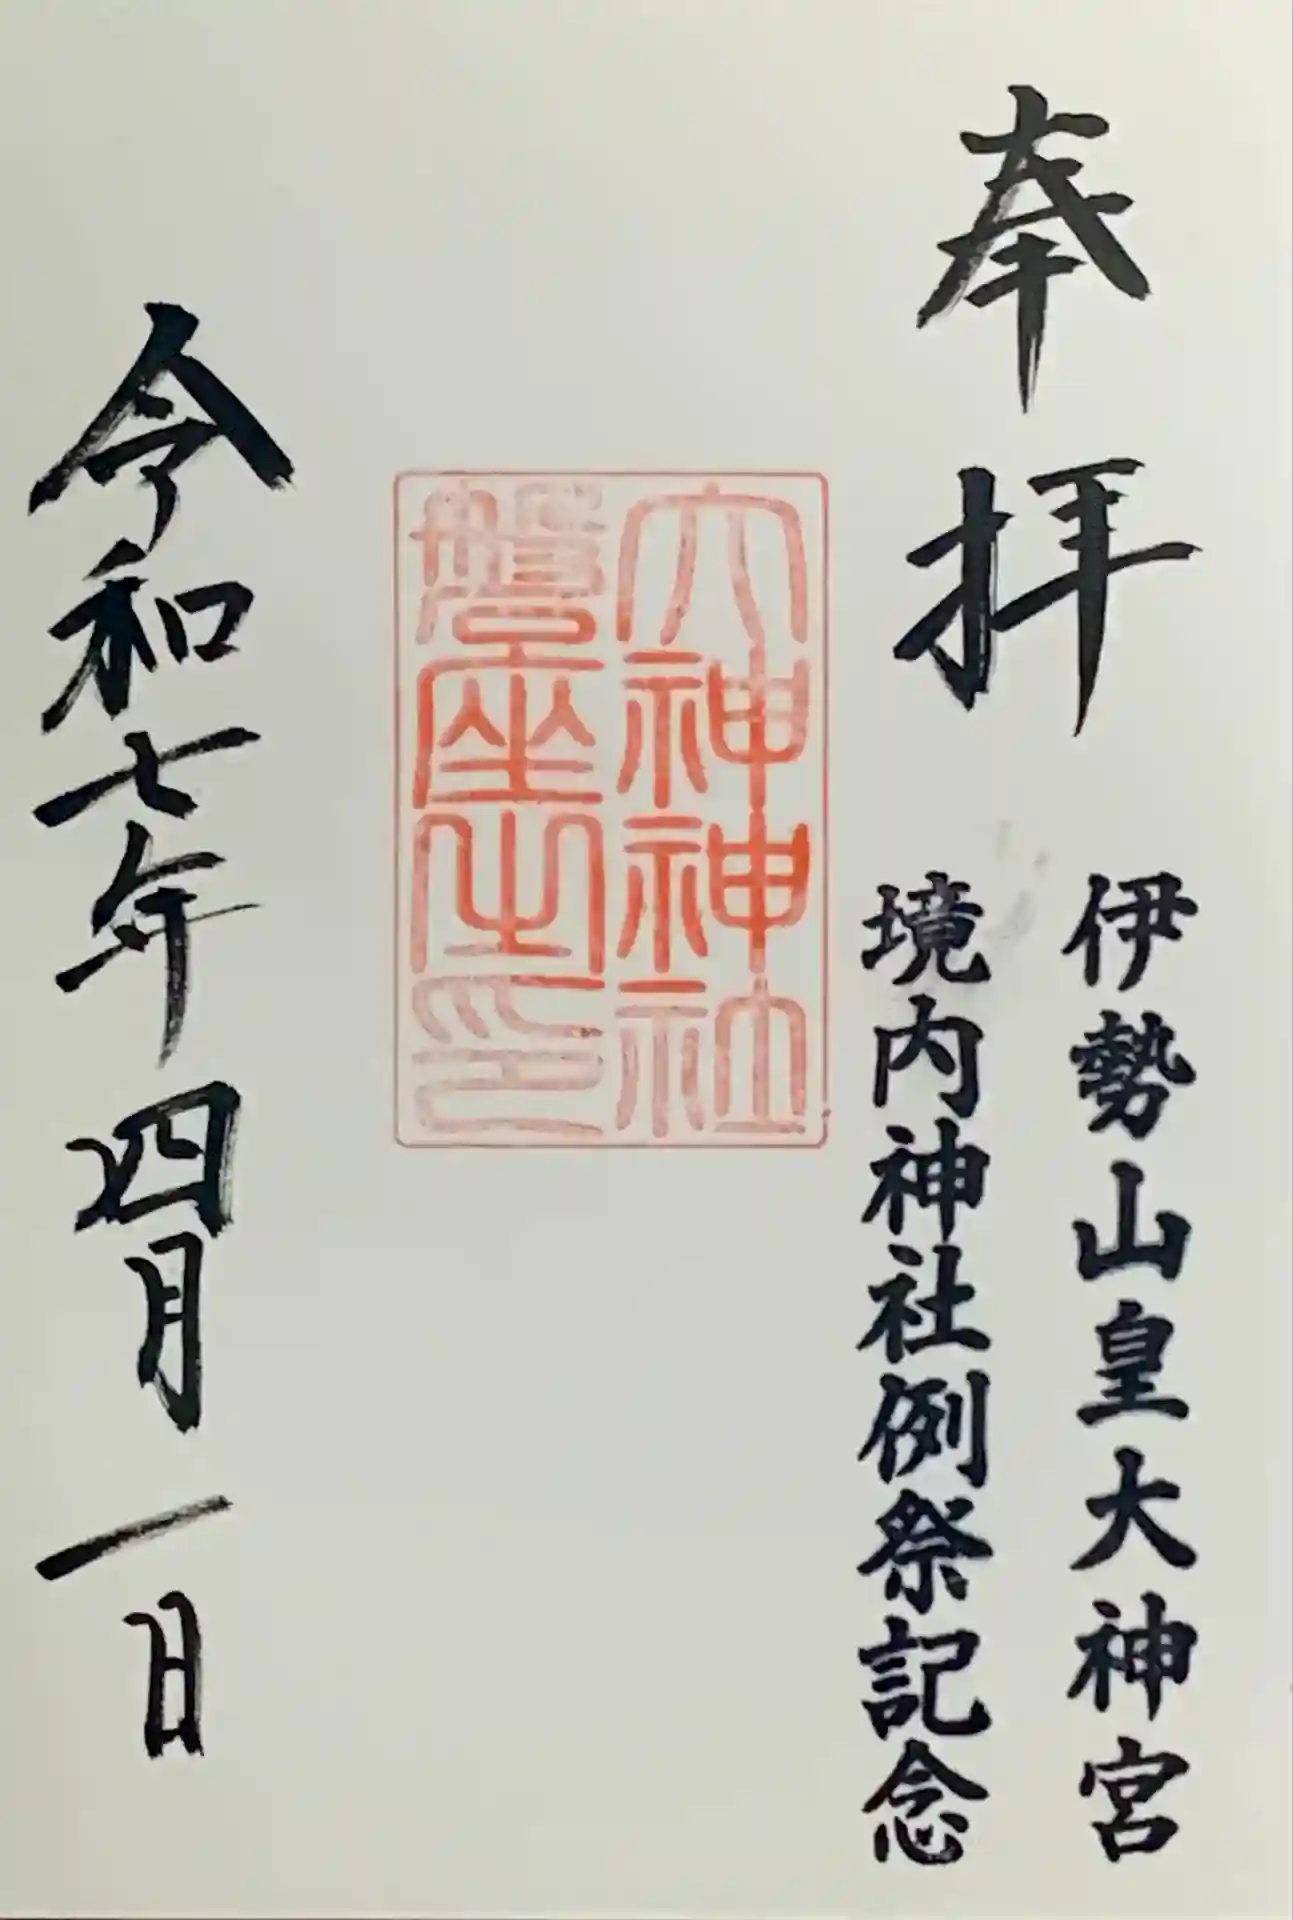 奉拝
伊勢山皇大神宮
境内神社例祭記念
大神神社
磐座之印
令和七年四月一日